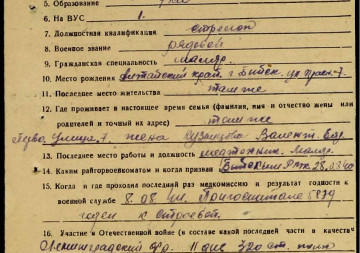 5. Образование 7 кл
6. На ВУС 1.
7. Должностная квалификация стрелок
8. Военное звание рядовой
9. Гражданская специальность маляр.
10. Место рождения Алтайский край, г. Бийск. ул
11. Последнее место жительства там же
12. Где проживает в настоящее время семья (фамилия, имя и отчество жены или
родителей и точный их адрес) там же
улица, 7. жена Кузнецова Валент.
13. Последнее место работы и должность Маляр.
14. Каким райгорвоенкоматом и когда призван Бийским РВК 28.
15. Когда и где проходил последний раз медкомиссию и результат годности к
военной службе 8.08 госпитале
годен к строевой.
16. Участие в Отечественной войне (в составе какой последней части и в качестве
Ленинградский фр. 11 див 320 полк